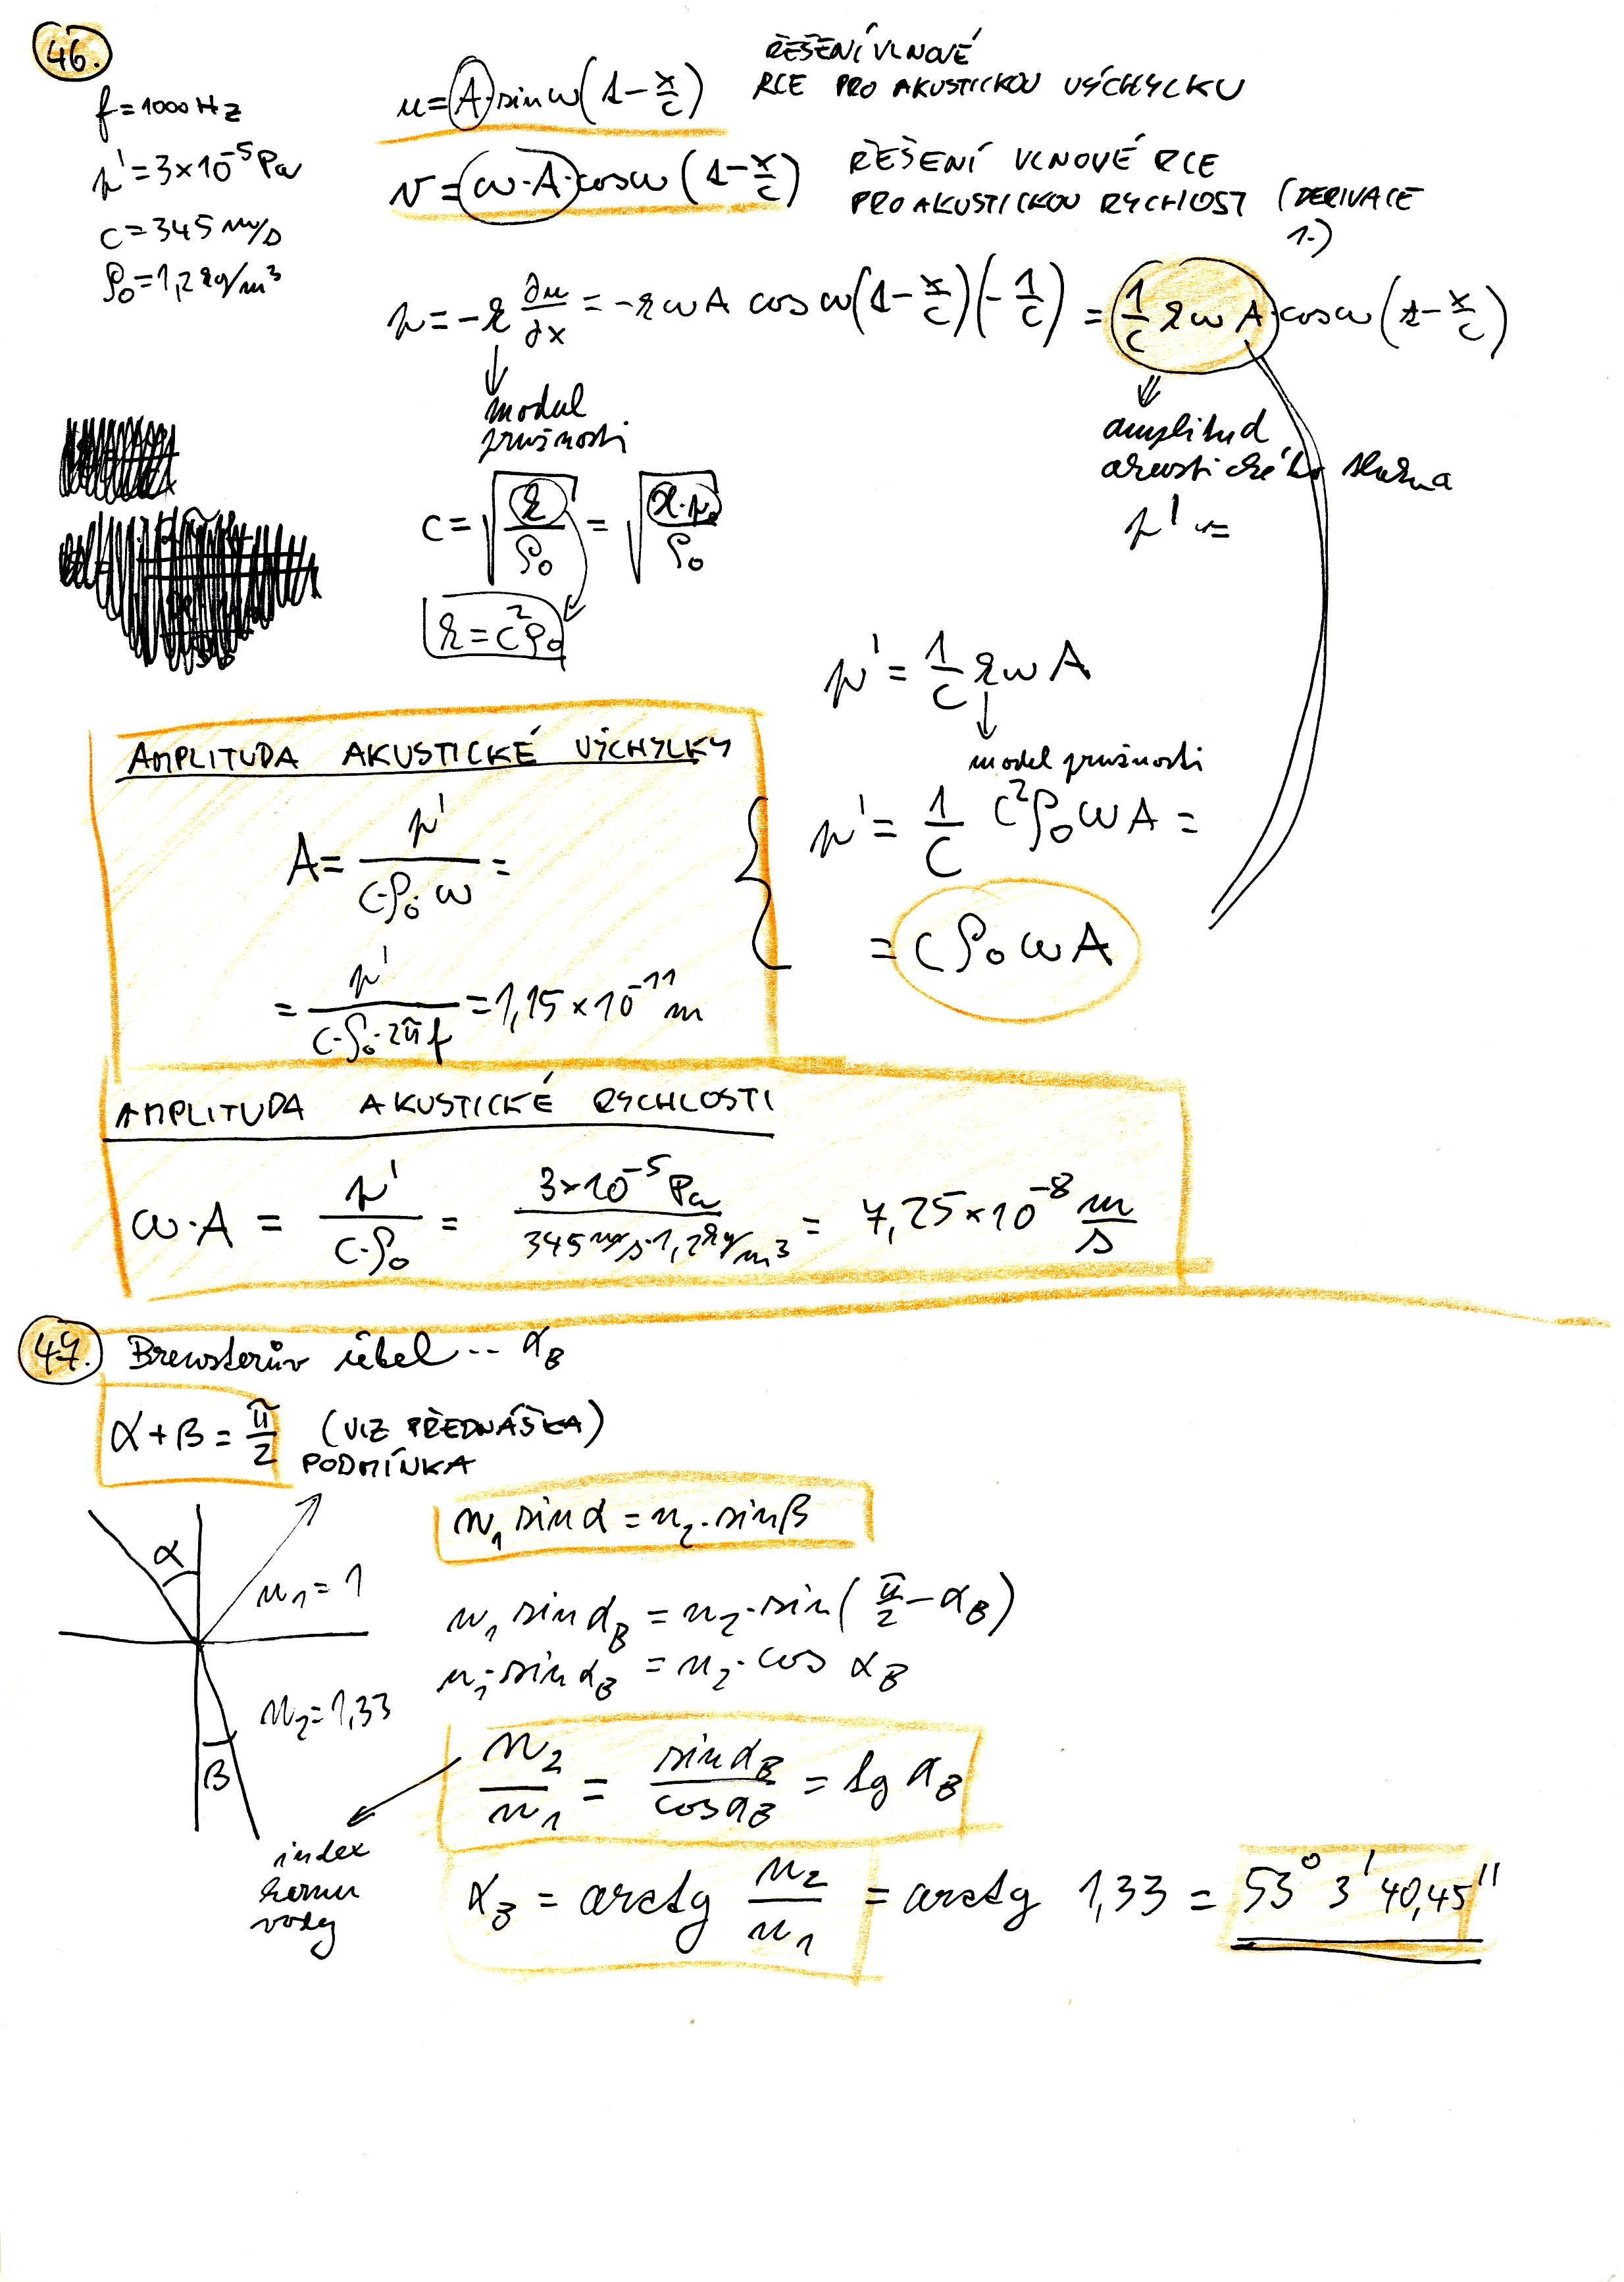 46.
f = 1000 Hz
p' = 3×10⁻⁵ Pa
c = 345 m/s
ρ₀ = 1,2 kg/m³
u = A·sin ω(t − x/c)
ŘEŠENÍ VLNOVÉ
RCE PRO AKUSTICKOU VÝCHYLKU
v = ω·A·cos ω(t − x/c)
ŘEŠENÍ VLNOVÉ RCE
PRO AKUSTICKOU RYCHLOST (DERIVACE
1.)
p = −k ∂u/∂x = −kωA cos ω(t − x/c)(−1/c) = (1/c kωA)·cos ω(t − x/c)
modul
pružnosti
amplitud
akustického tlaku
p' =
c = √(k/ρ₀) = √(ϰ·p₀/ρ₀)
k = c²ρ₀
p' = 1/c kωA
modul pružnosti
p' = 1/c c²ρ₀ωA =
= cρ₀ωA
AMPLITUDA AKUSTICKÉ VÝCHYLKY
A = p'/(c·ρ₀·ω) =
= p'/(c·ρ₀·2πf) = 1,15×10⁻¹¹ m
AMPLITUDA AKUSTICKÉ RYCHLOSTI
ω·A = p'/(c·ρ₀) = 3×10⁻⁵ Pa/(345 m/s·1,2 kg/m³) = 7,25×10⁻⁸ m/s
47.
Brewsterův úhel .. α_B
α + β = π/2 (VIZ PŘEDNÁŠKA)
PODMÍNKA
α
n₁ = 1
n₂ = 1,33
β
n₁ sin α = n₂·sin β
n₁ sin α_B = n₂·sin(π/2 − α_B)
n₁·sin α_B = n₂·cos α_B
n₂/n₁ = sin α_B/cos α_B = tg α_B
index
lomu
vody
α_B = arctg n₂/n₁ = arctg 1,33 = 53° 3' 40,45''